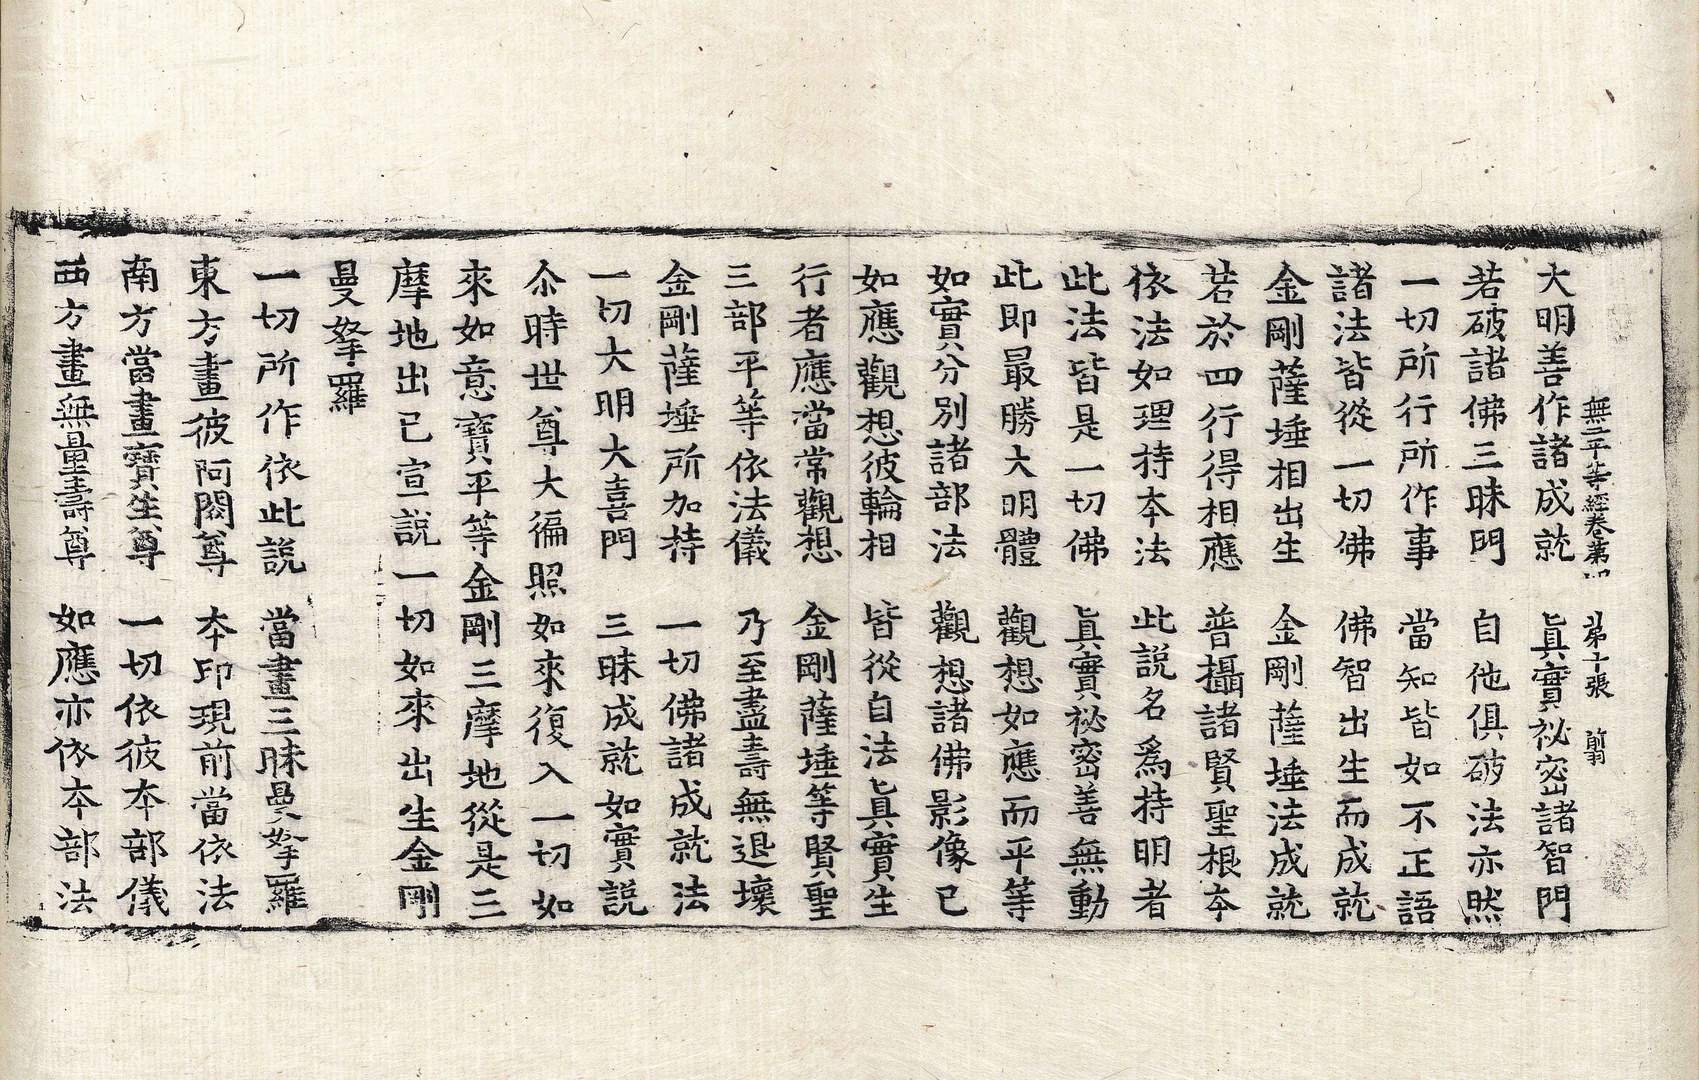 無二平等經卷第四　第十張　翦
大明善作諸成就　眞實祕密諸智門
若破諸佛三昧門　自他俱破法亦然
一切所行所作事　當知皆如不正語
諸法皆從一切佛　佛智出生而成就
金剛薩埵相出生　金剛薩埵法成就
若於四行得相應　普攝諸賢聖根夲
依法如理持夲法　此說名爲持明者
此法皆是一切佛　眞實祕密善無動
此即最勝大明體　觀想如應而平等
如實分別諸部法　觀想諸佛影像已
如應觀想彼輪相　皆從自法眞實生
行者應當常觀想　金剛薩埵等賢聖
三部平等依法儀　乃至盡壽無退壞
金剛薩埵所加持　一切佛諸成就法
一切大明大喜門　三昧成就如實說
尒時世尊大徧照如來復入一切如
來如意寶平等金剛三摩地從是三
摩地出已宣說一切如來出生金剛
曼拏羅
一切所作依此說　當畫三昧曼拏羅
東方畫彼阿閦尊　夲印現前當依法
南方當畫寶生尊　一切依彼夲部儀
西方畫無量壽尊　如應亦依夲部法